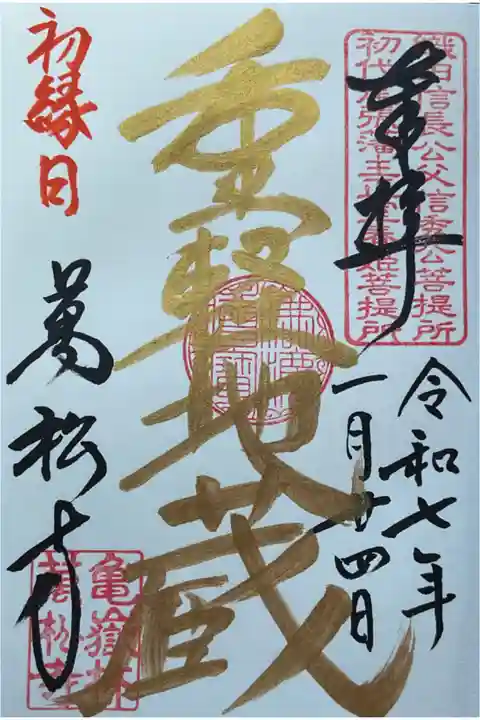 織田信長公父信秀公菩提所
初代尾張藩主 春姫菩提所
奉拝
令和七年
一月廿四日
重軽地蔵
初縁日
萬松寺
亀嶽林
萬松寺